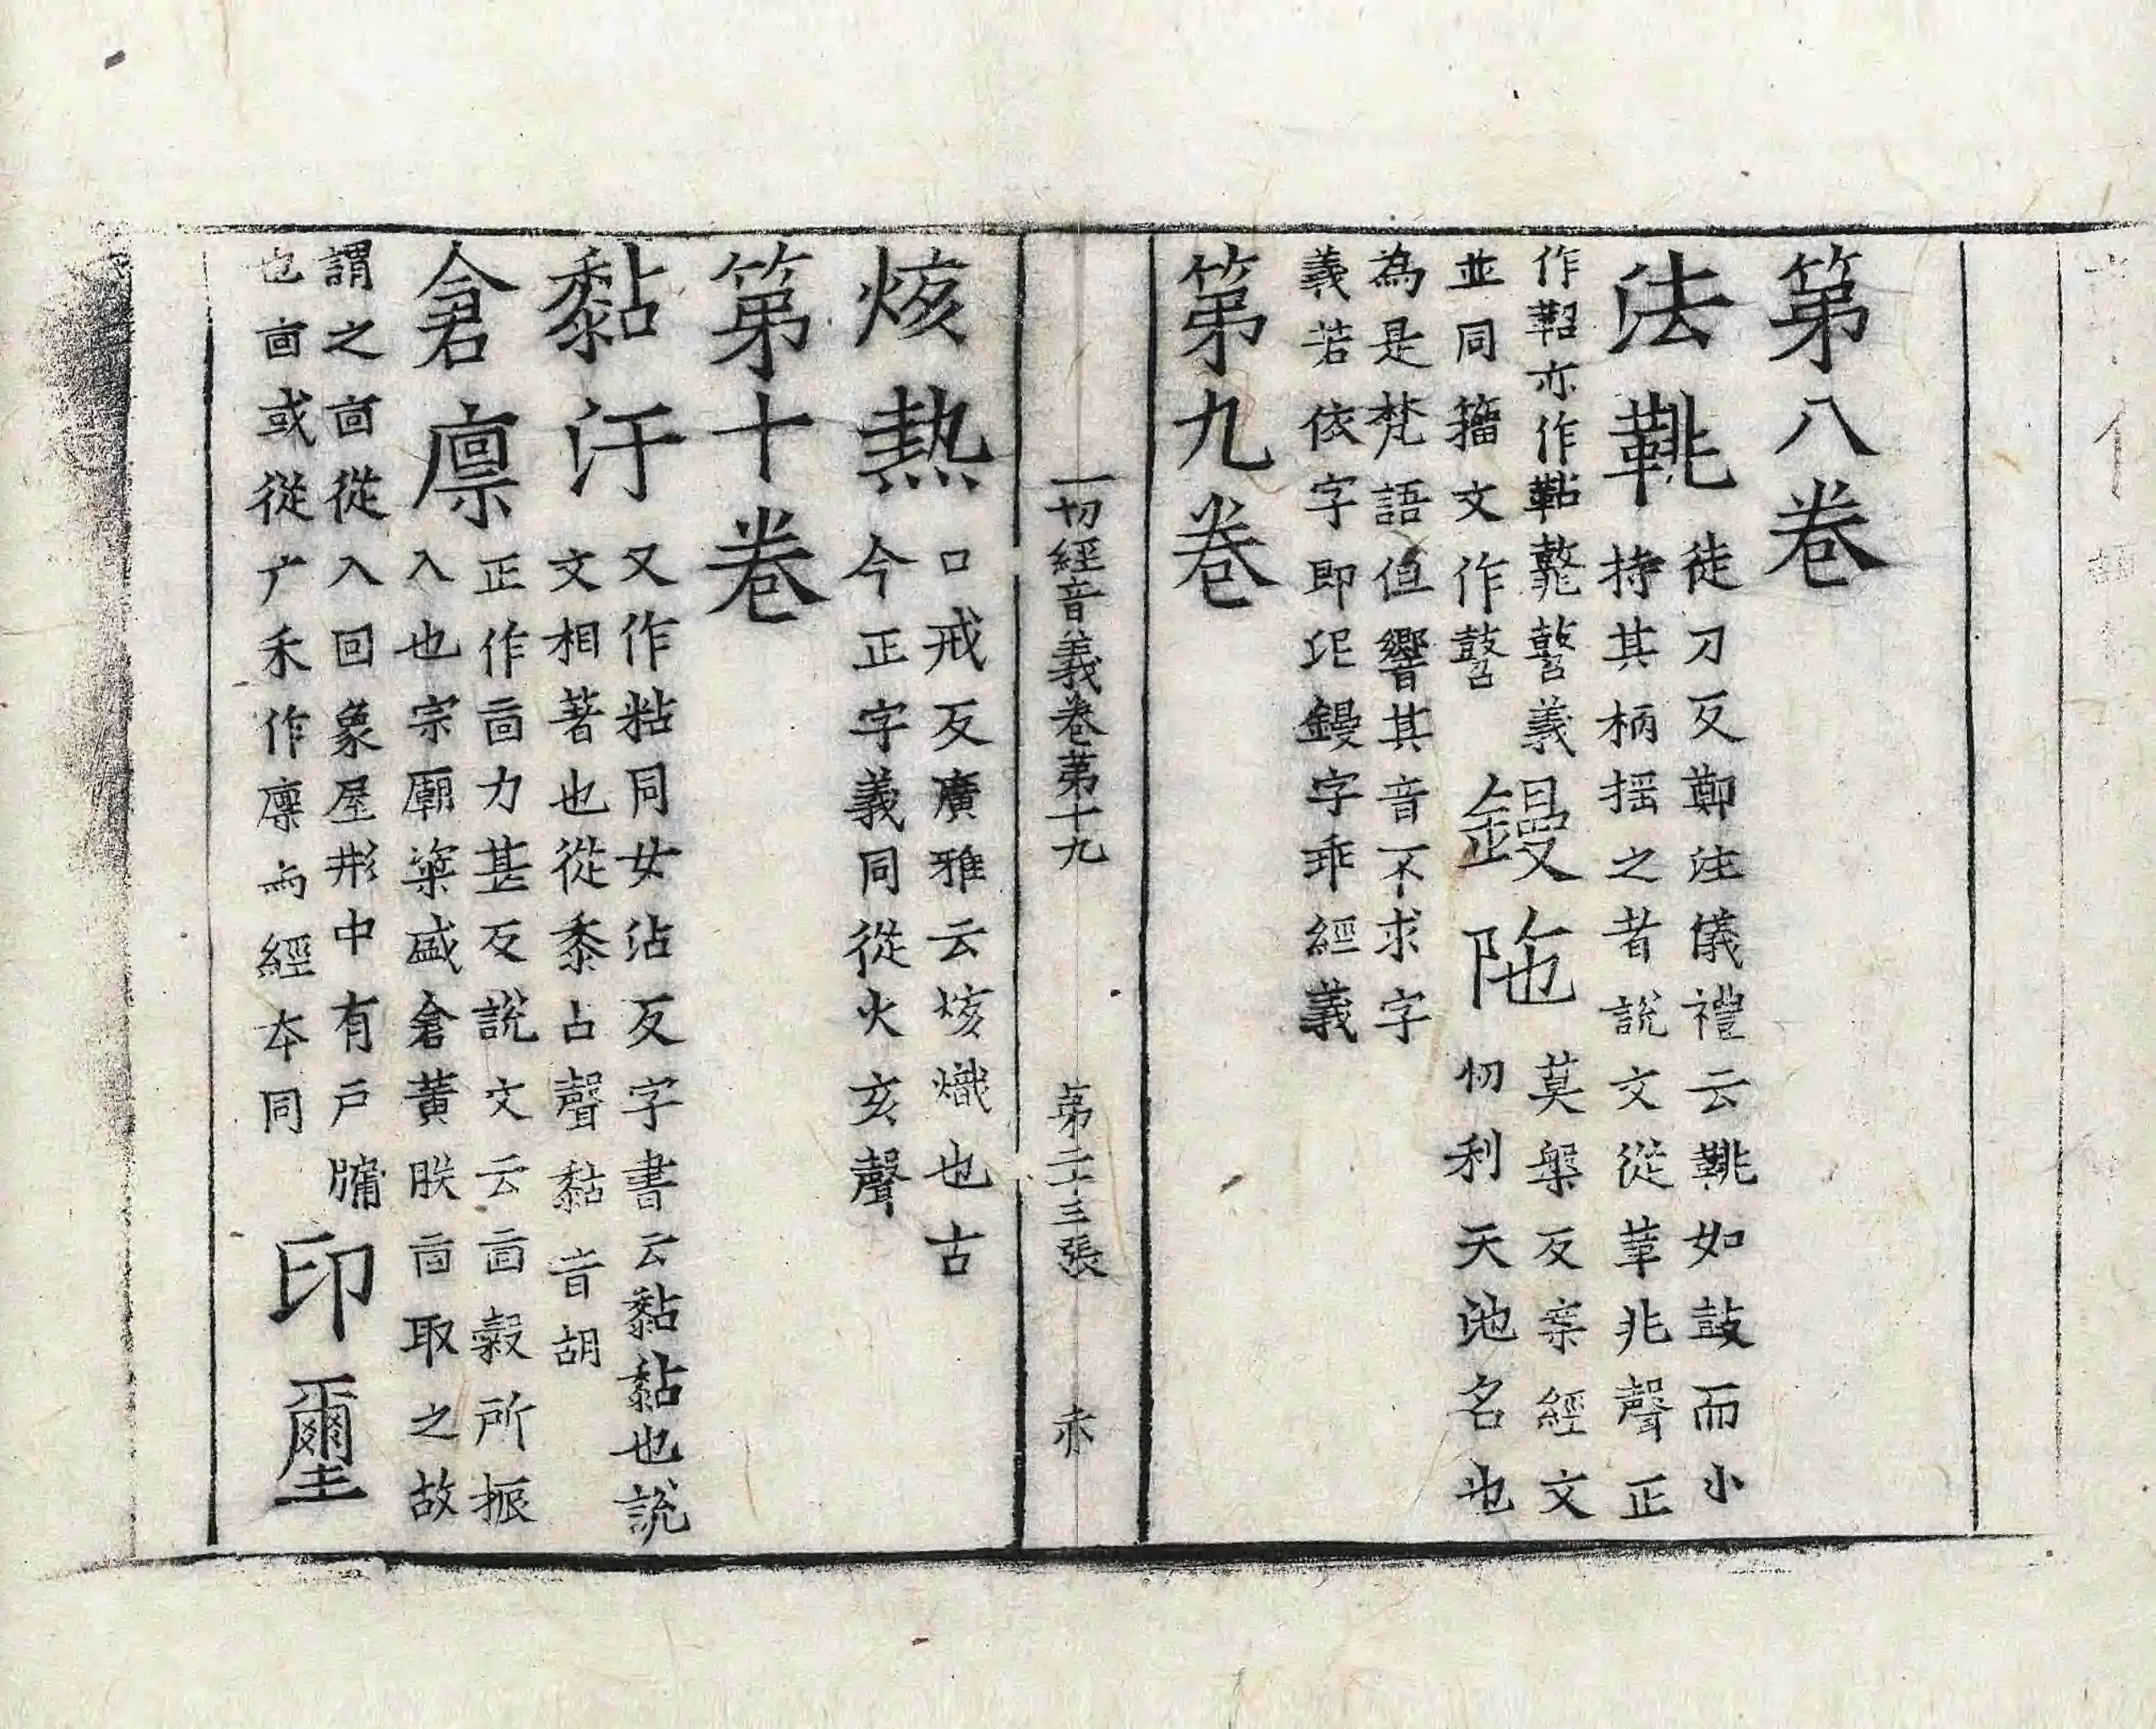 第八卷
法鞉
徒刀反鄭注儀禮云鞉如鼓而小
持其柄揺之者說文從革兆聲正
作鞀亦作鞊鼗磬義
並同籀文作鼛
鏝陁
莫槃反案經文
忉利天池名也
為是梵語但響其音不求字
義若依字即此鏝字乖經義
第九卷
一切經音義卷苐十九 苐二十三張 亦
烗熱
口戒反廣雅云烗熾也古
今正字義同從火亥聲
第十卷
黏汙
又作粘同女沾反字書云黏黏也說
文相著也從黍占聲黏音胡
倉廩
正作㐭力甚反說文云㐭穀所振
入也宗廟粢盛倉黃朕㐭取之故
謂之㐭從入回象屋形中有戶牖
也㐭或從广禾作廪而經本同
印璽